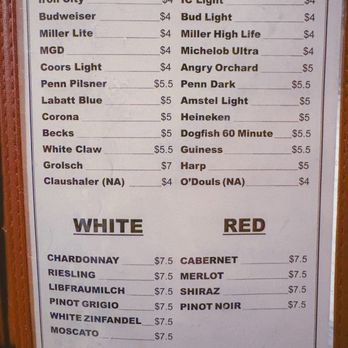 Iron City $4 IC Light $4
Budweiser $4 Bud Light $4
Miller Lite $4 Miller High Life $4
MGD $4 Michelob Ultra $4
Coors Light $4 Angry Orchard $5
Penn Pilsner $5.5 Penn Dark $5.5
Labatt Blue $5 Amstel Light $5
Corona $5 Heineken $5
Becks $5 Dogfish 60 Minute $5.5
White Claw $5.5 Guiness $5.5
Grolsch $7 Harp $5
Claushaler (NA) $4 O'Douls (NA) $4
WHITE RED
CHARDONNAY $7.5 CABERNET $7.5
RIESLING $7.5 MERLOT $7.5
LIBFRAUMILCH $7.5 SHIRAZ $7.5
PINOT GRIGIO $7.5 PINOT NOIR $7.5
WHITE ZINFANDEL $7.5
MOSCATO $7.5